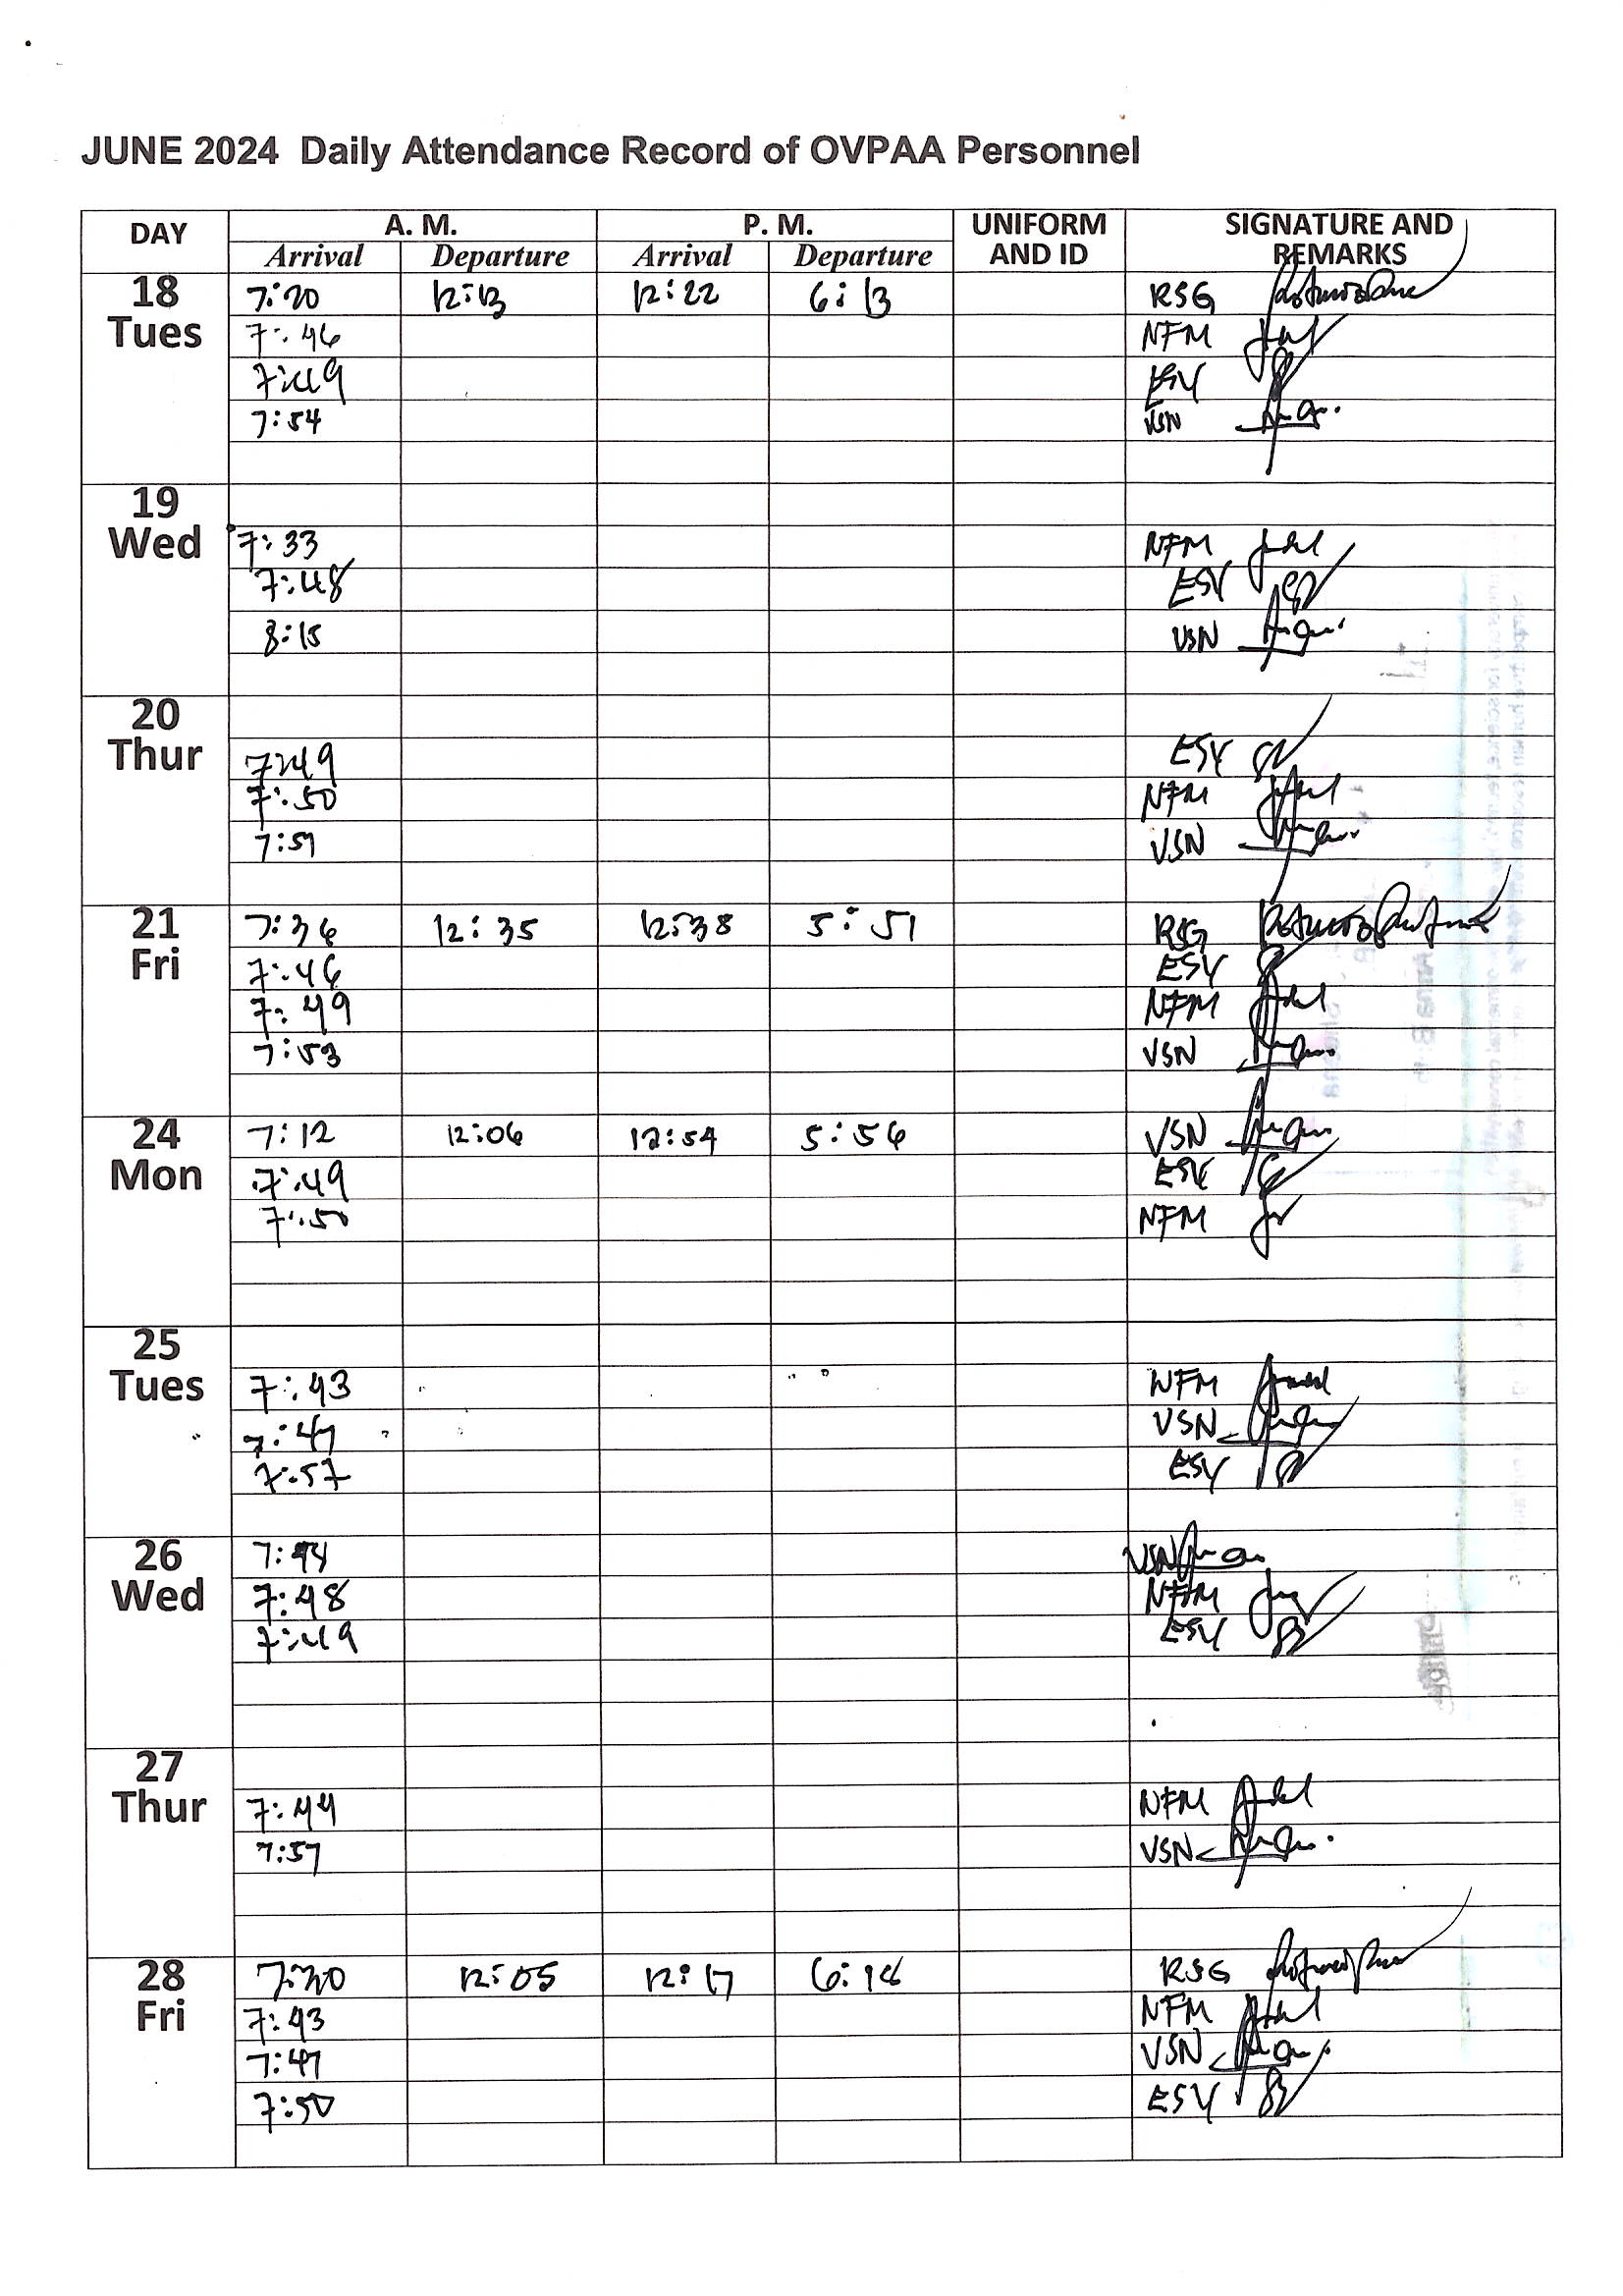 JUNE 2024 Daily Attendance Record of OVPAA Personnel
DAY A. M. P. M. UNIFORM AND ID SIGNATURE AND REMARKS
Arrival Departure Arrival Departure
18 Tues
7:20 12:13 12:22 6:13 RSG
7:46 NFM
7:49 ESY
7:54 VSN
19 Wed
7:33 NFM
7:48 ESY
8:15 VSN
20 Thur
7:49 ESY
7:50 NFM
7:51 VSN
21 Fri
7:36 12:35 12:38 5:51 RSG
7:46 ESY
7:49 NFM
7:53 VSN
24 Mon
7:12 12:06 12:54 5:56 VSN
7:49 ESY
7:50 NFM
25 Tues
7:43 NFM
7:47 VSN
7:57 ESY
26 Wed
7:44 VSN
7:48 NFM
7:49 ESY
27 Thur
7:44 NFM
7:57 VSN
28 Fri
12:05 12:17 RSG
7:43 NFM
7:47 VSN
7:50 ESY